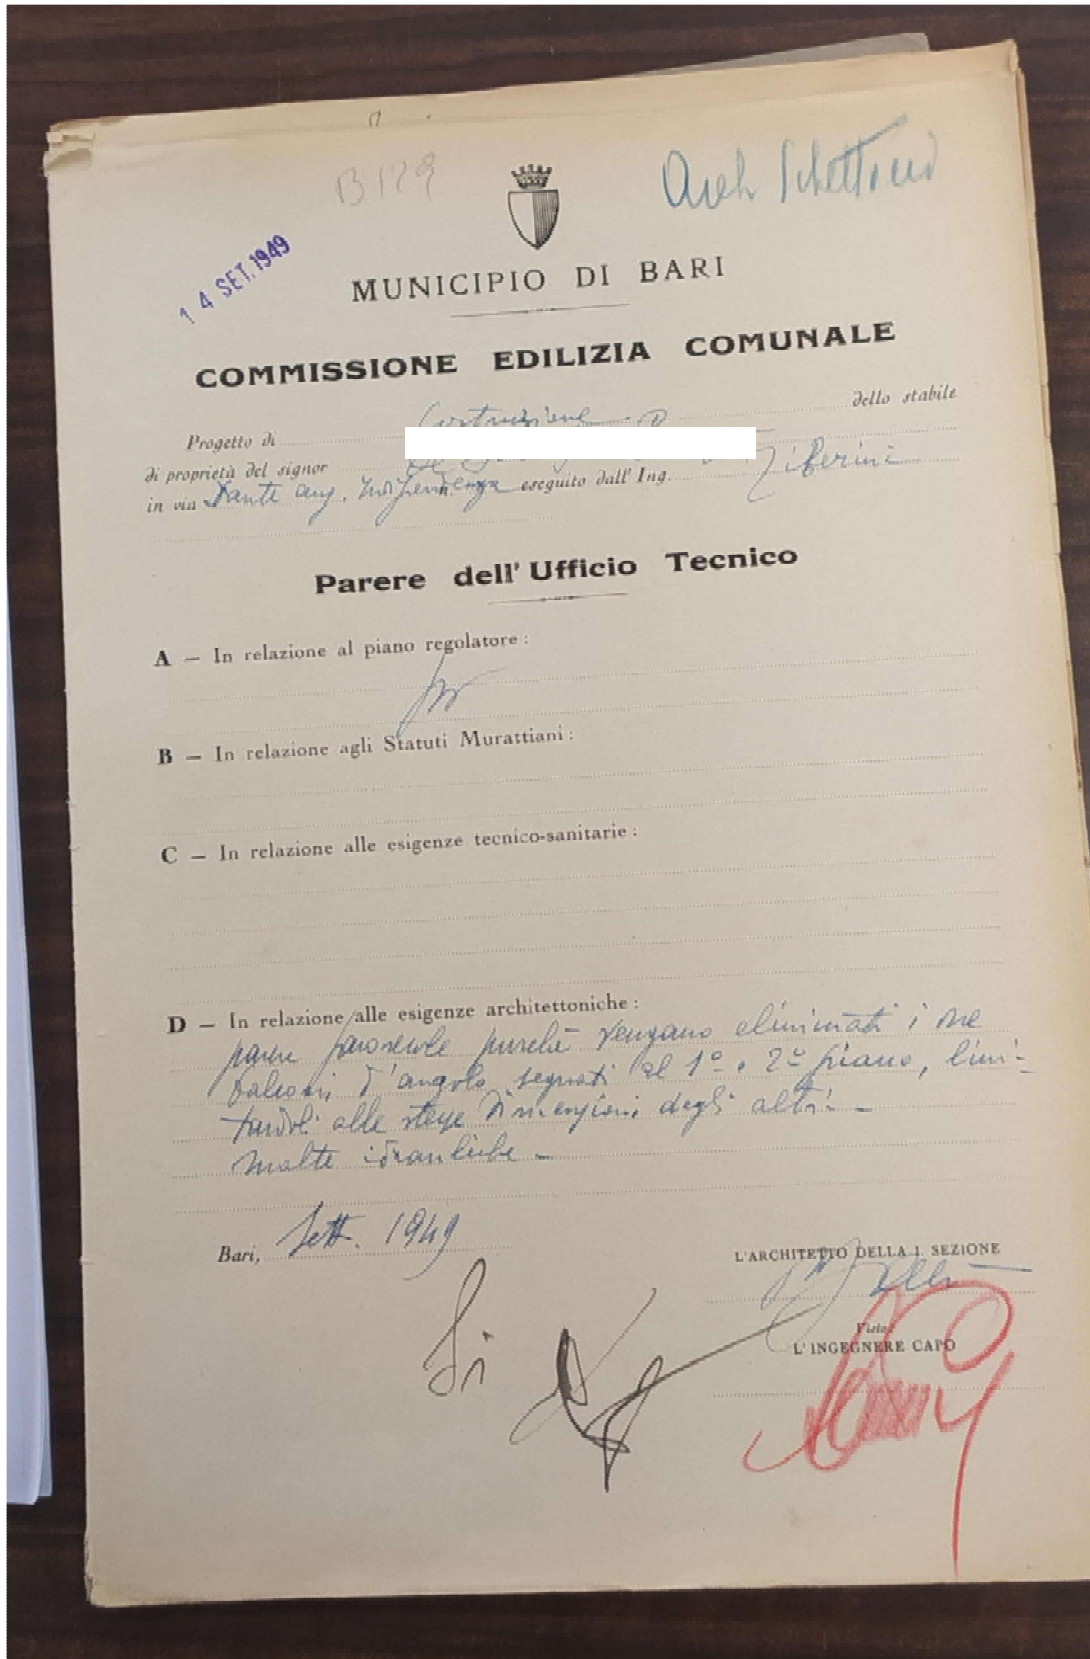 B 129
Arch Schettini
14 SET. 1949
MUNICIPIO DI BARI
COMMISSIONE EDILIZIA COMUNALE
Progetto di Costruzione dello stabile
di proprietà del signor
in via Dante ang. Indipendenza eseguito dall' Ing. Ziberini
Parere dell' Ufficio Tecnico
A — In relazione al piano regolatore :
B — In relazione agli Statuti Murattiani :
C — In relazione alle esigenze tecnico-sanitarie :
D — In relazione alle esigenze architettoniche :
parere favorevole purché vengano eliminati i
balconi d'angolo segnati al 1º e 2º piano, limi-
tandoli alle stesse dimensioni degli altri. —
Malte idrauliche —
Bari, Sett. 1949
L'ARCHITETTO DELLA I. SEZIONE
Visto
L' INGEGNERE CAPO
Si